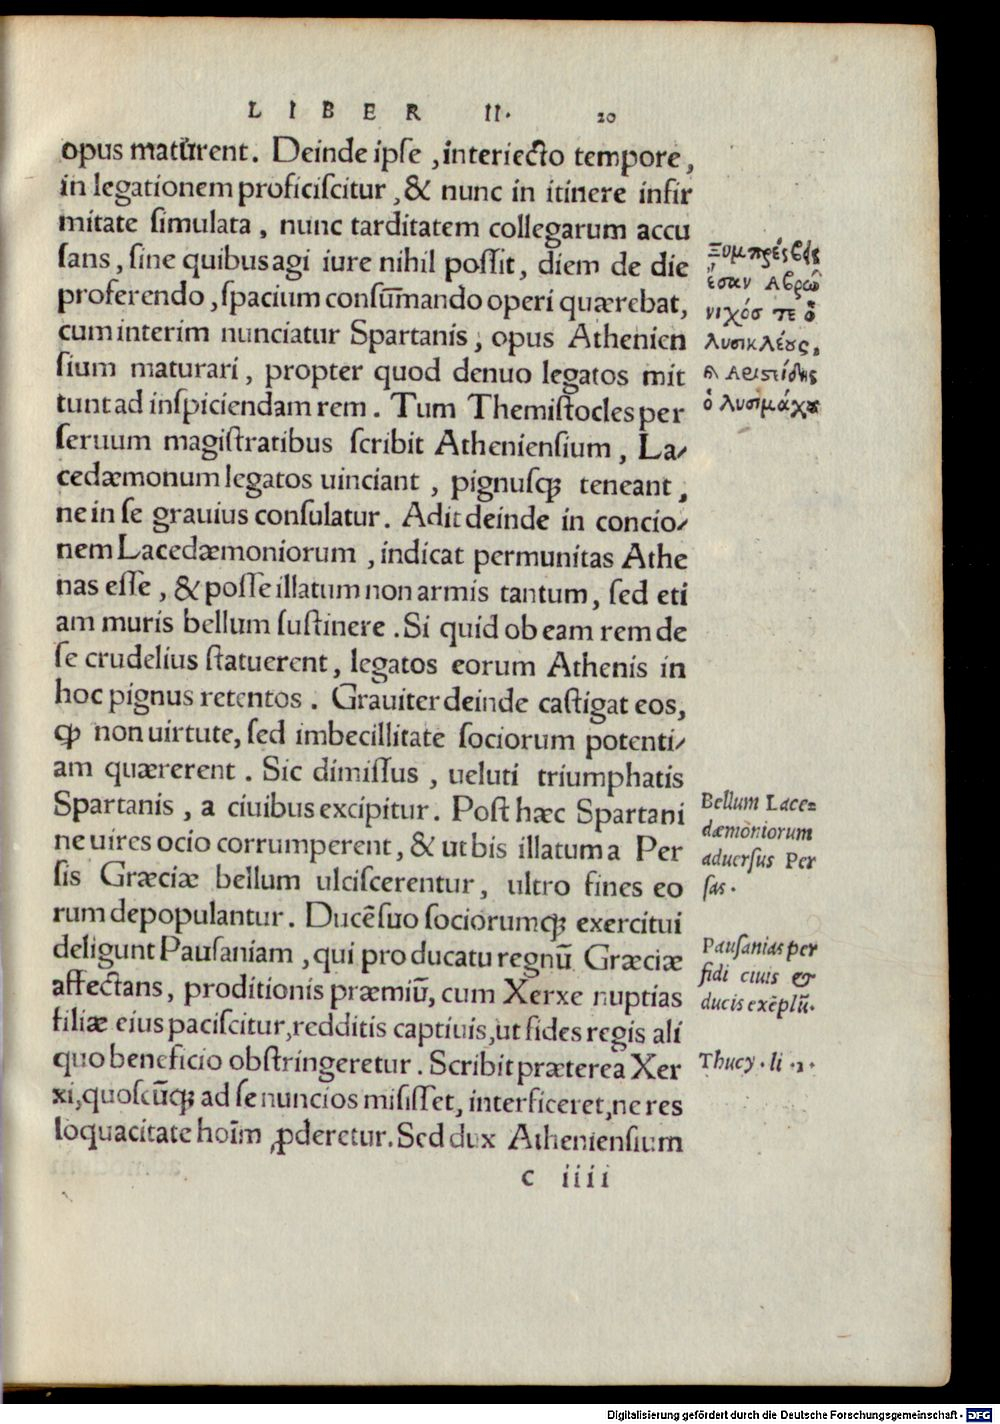 LIBER II. 20
opus matu᷑rent. Deinde ipſe, interiecto tempore,
in legationem proficiſcitur, & nunc in itinere infir
mitate ſimulata, nunc tarditatem collegarum accu
ſans, ſine quibus agi iure nihil poſſit, diem de die
proferendo, ſpacium conſūmando operi quærebat,
cum interim nunciatur Spartanis, opus Athenien
ſium maturari, propter quod denuo legatos mit
tunt ad inſpiciendam rem. Tum Themiſtocles per
ſeruum magiſtratibus ſcribit Athenienſium, La/
cedæmonum legatos uinciant, pignuſqꝫ teneant,
ne in ſe grauius conſulatur. Adit deinde in concio/
nem Lacedæmoniorum, indicat permunitas Athe
nas eſſe, & poſſe illatum non armis tantum, ſed eti
am muris bellum ſuſtinere. Si quid ob eam rem de
ſe crudelius ſtatuerent, legatos eorum Athenis in
hoc pignus retentos. Grauiter deinde caſtigat eos,
ꝙ non uirtute, ſed imbecillitate ſociorum potenti/
am quærerent. Sic dimiſſus, ueluti triumphatis
Spartanis, a ciuibus excipitur. Poſt hæc Spartani
ne uires ocio corrumperent, & ut bis illatum a Per
ſis Græciæ bellum ulciſcerentur, ultro fines eo
rum depopulantur. Ducē ſuo ſociorumqꝫ exercitui
deligunt Pauſaniam, qui pro ducatu regnū Græciæ
affectans, proditionis præmiū, cum Xerxe nuptias
filiæ eius paciſcitur, redditis captiuis, ut fides regis ali
quo beneficio obſtringeretur. Scribit præterea Xer
xi, quoſcūqꝫ ad ſe nuncios miſiſſet, interficeret, ne res
loquacitate hoīm ꝓderetur. Sed dux Athenienſium
c iiii
Ξυμπρέσβεις
ἦσαν Ἁβρώ
νιχός τε ὁ
λυσικλέους,
ὁ λυσιμάχου
Bellum Lace=
dæmoniorum
aduerſus Per
ſas.
Pauſanias per
fidi ciuis &
ducis exēplū.
Thucy. li .1.
Digitalisierung gefördert durch die Deutsche Forschungsgemeinschaft - DFG